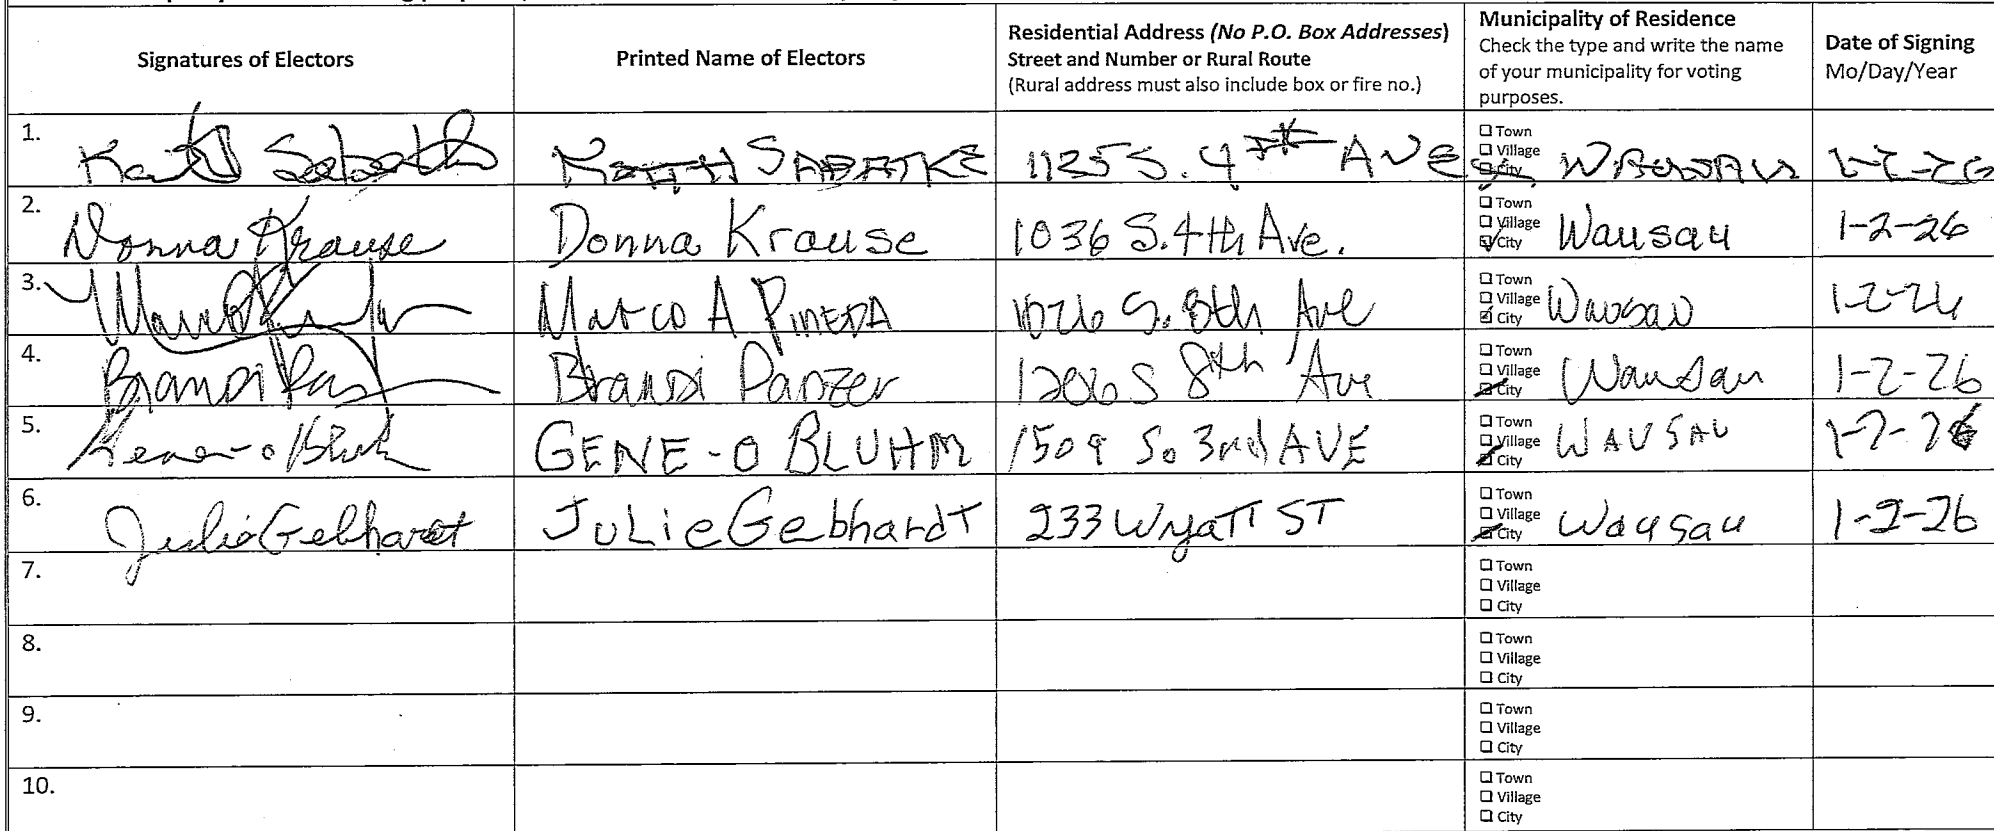 Signatures of Electors
Printed Name of Electors
Residential Address (No P.O. Box Addresses)
Street and Number or Rural Route
(Rural address must also include box or fire no.)
Municipality of Residence
Check the type and write the name
of your municipality for voting
purposes.
Date of Signing
Mo/Day/Year
1. KEITH SABATKE 1125 S. 4TH AVE Town Village City WAUSAU 1-2-26
2. Donna Krause Donna Krause 1036 S. 4th Ave. Town Village City Wausau 1-2-26
3. Marco A PINEDA 1026 S. 8th Ave Town Village City Wausau 1-2-26
4. Brandi Brandi Panzer 1206 S 8th Ave Town Village City Wausau 1-2-26
5. GENE-O BLUHM 1509 So 3rd AVE Town Village City WAUSAU 1-2-26
6. Julie Gebhardt JuLie Gebhardt 233 Wyatt ST Town Village City Wausau 1-2-26
7. Town Village City
8. Town Village City
9. Town Village City
10. Town Village City